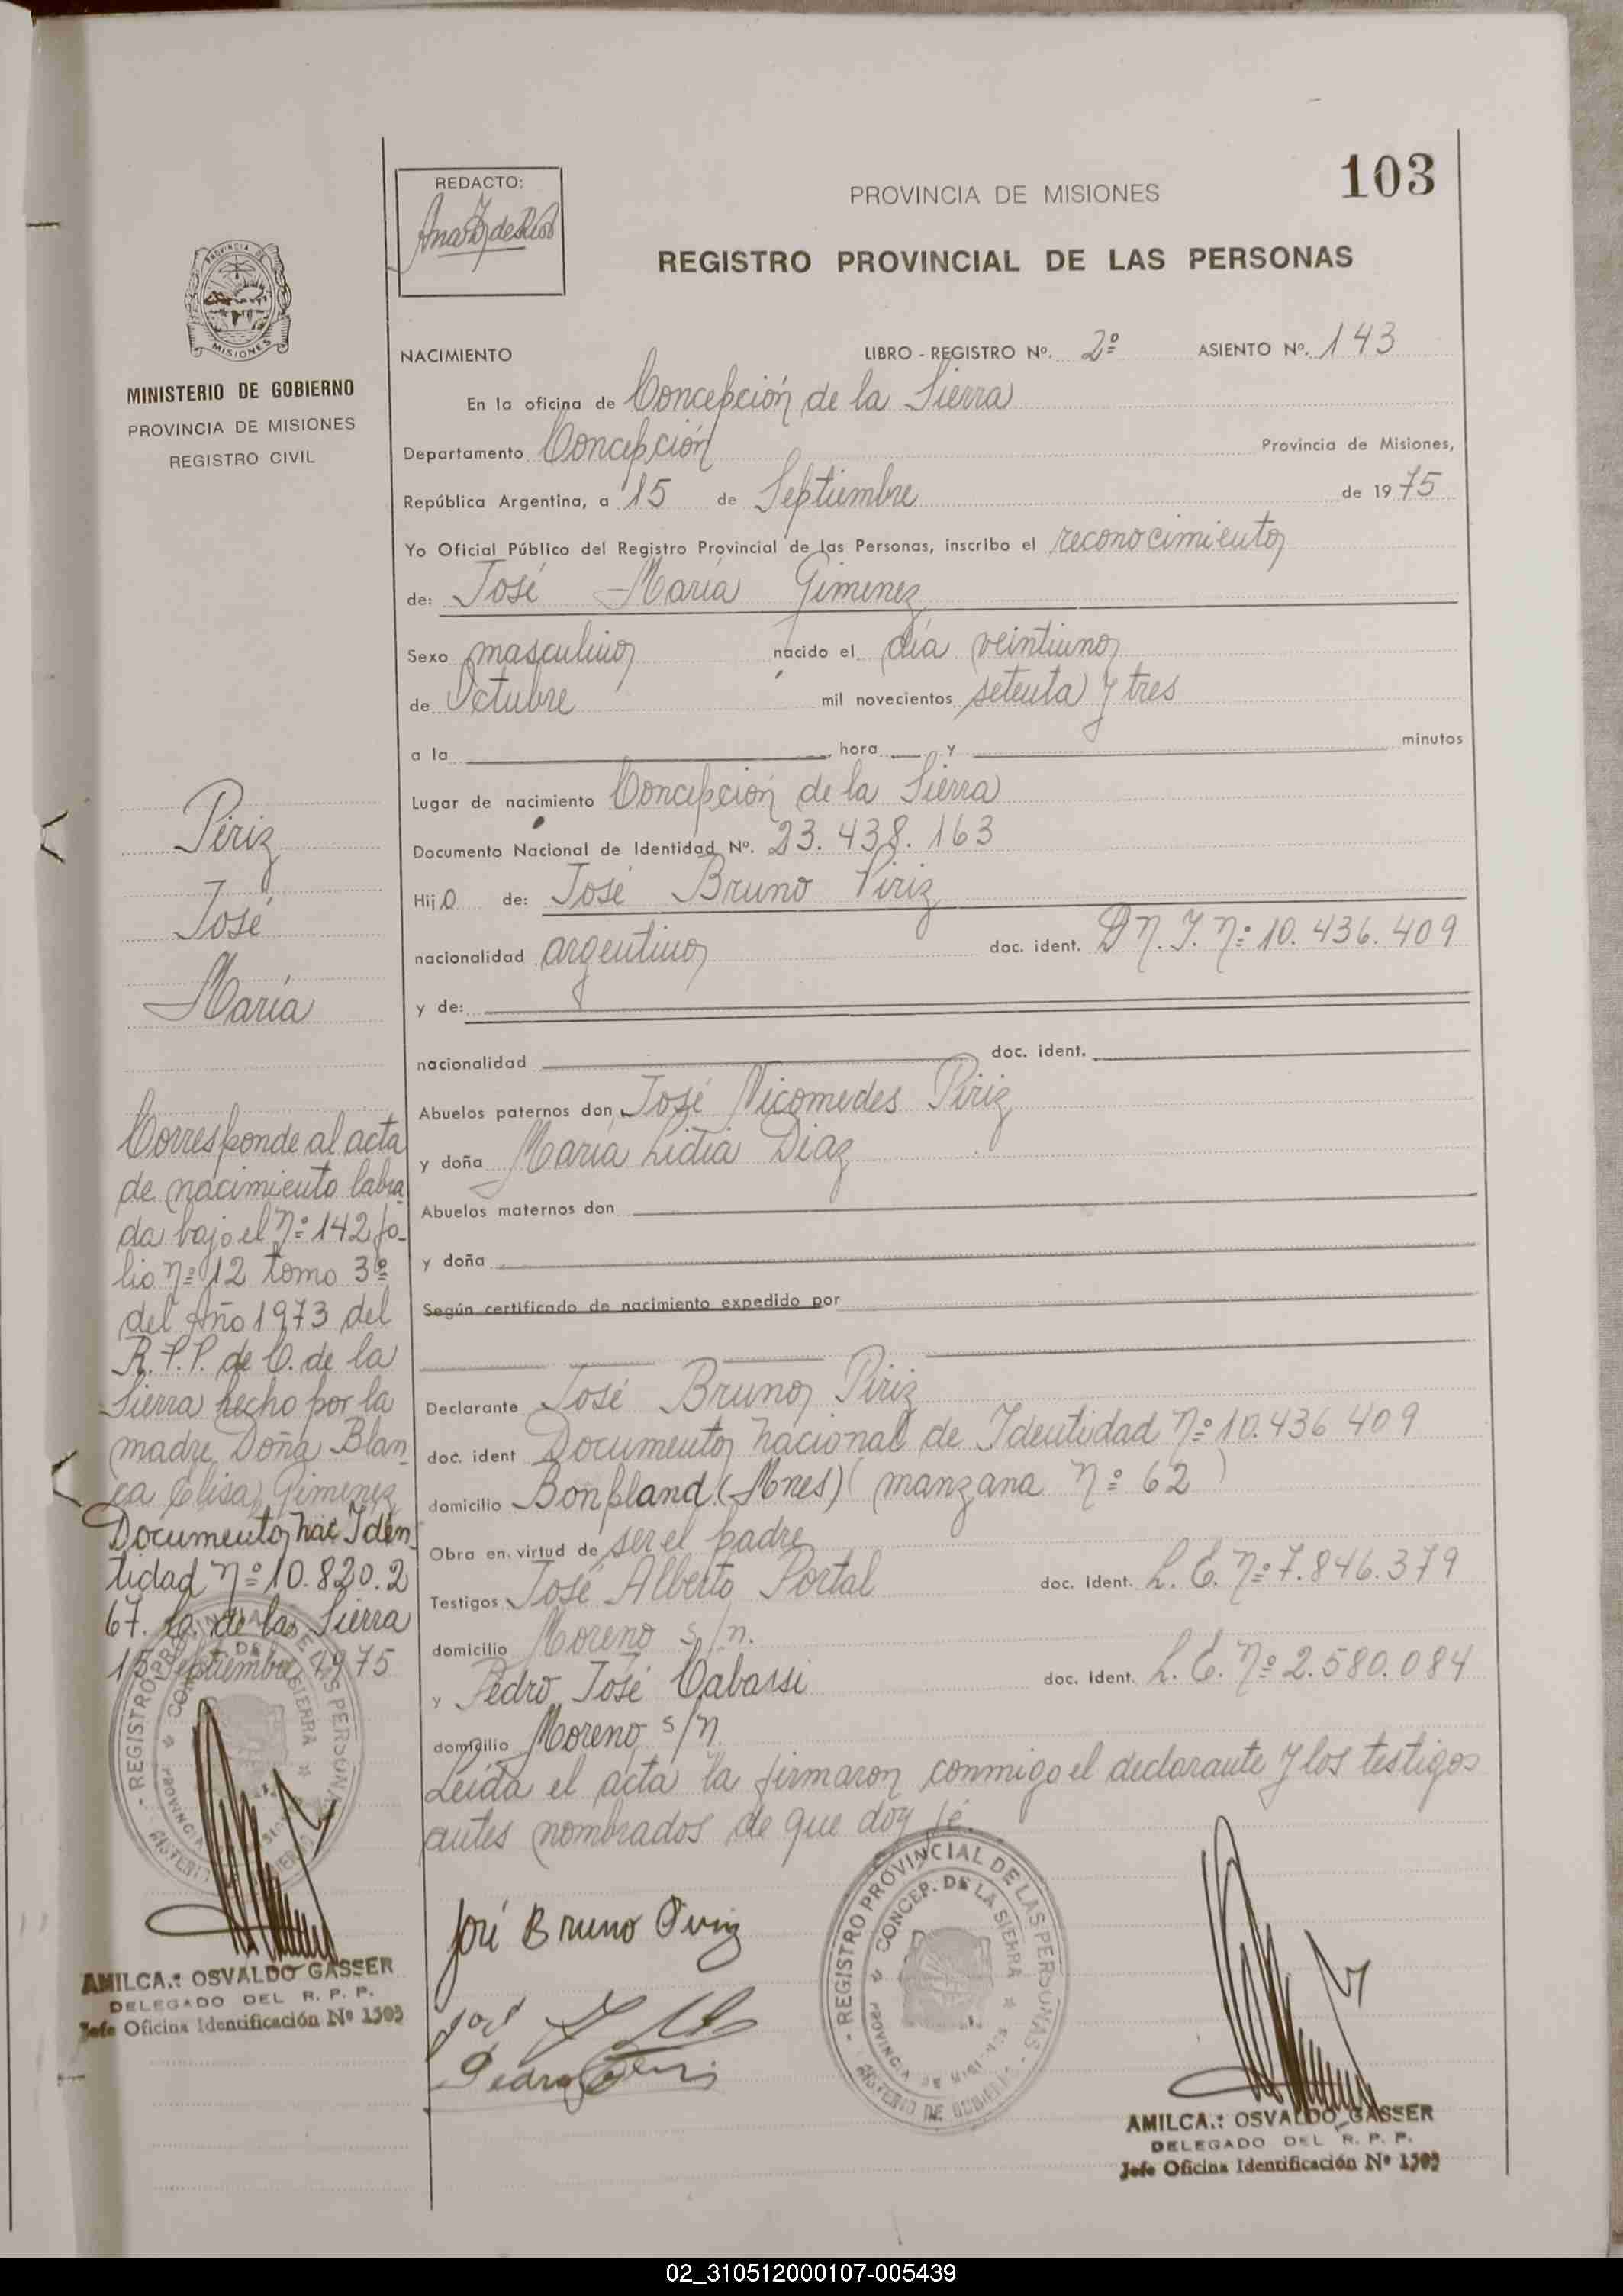 103
REDACTO:
PROVINCIA DE MISIONES
REGISTRO PROVINCIAL DE LAS PERSONAS
PROVINCIA DE
MISIONES
MINISTERIO DE GOBIERNO
PROVINCIA DE MISIONES
REGISTRO CIVIL
NACIMIENTO LIBRO - REGISTRO Nº. 2º ASIENTO Nº. 143
En la oficina de Concepción de la Sierra
Departamento Concepción Provincia de Misiones,
República Argentina, a 15 de Septiembre de 1975
Yo Oficial Público del Registro Provincial de las Personas, inscribo el reconocimiento
de: José María Gimenez
Sexo masculino nacido el día veintiuno
de Octubre mil novecientos setenta y tres
a la hora y minutos
Lugar de nacimiento Concepción de la Sierra
Documento Nacional de Identidad Nº. 23.438.163
Hijo de: José Bruno Piriz
nacionalidad argentino doc. ident. D.N.I. Nº 10.436.409
y de:
nacionalidad doc. ident.
Abuelos paternos don José Nicomedes Piriz
y doña María Lidia Diaz
Abuelos maternos don
y doña
Según certificado de nacimiento expedido por
Declarante José Bruno Piriz
doc. ident Documento Nacional de Identidad Nº 10.436 409
domicilio Bonpland (Mnes) (manzana Nº 62)
Obra en virtud de ser el padre
Testigos José Alberto Portal doc. Ident. L. E. Nº 7.846.379
domicilio Moreno s/n.
y Pedro José Cabassi doc. Ident. L. E. Nº 2.580.084
domicilio Moreno s/n
Leída el acta la firmaron conmigo el declarante y los testigos
antes nombrados de que doy fé.
Piriz
José
María
Corresponde al acta
de nacimiento labra
da bajo el Nº 142 fo-
lio Nº 12 tomo 3º
del Año 1973 del
R.P.P. de C. de la
Sierra hecho por la
madre Doña Blan
ca Elisa Gimenez
Documento Nac Iden
tidad Nº 10.820.2
67. C. de la Sierra
15 Septiembre 1975
REGISTRO PROVINCIAL DE LAS PERSONAS
CONCEP. DE LA SIERRA
PROVINCIA DE MISIONES
MINISTERIO DE GOBIERNO
AMILCA.: OSVALDO GASSER
DELEGADO DEL R. P. P.
Jefe Oficina Identificación Nº 1503
José Bruno Piriz
José
Pedro
REGISTRO PROVINCIAL DE LAS PERSONAS
CONCEP. DE LA SIERRA
PROVINCIA DE MISIONES
MINISTERIO DE GOBIERNO
AMILCA.: OSVALDO GASSER
DELEGADO DEL R. P. P.
Jefe Oficina Identificación Nº 1503
02_310512000107-005439